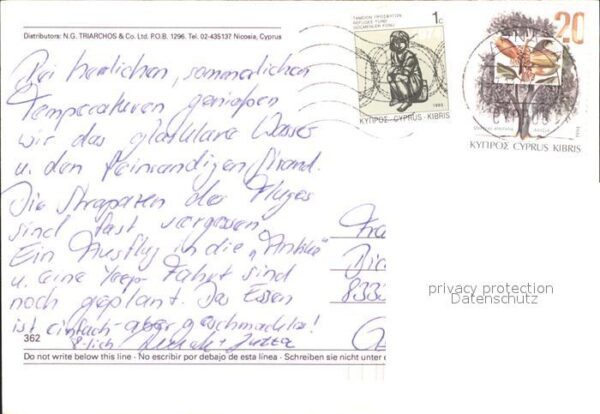 Distributors: N.G. TRIARCHOS & Co. Ltd. P.O.B. 1296. Tel. 02-435137 Nicosia, Cyprus
Bei herrlichen, sommerlichen
Temperaturen genießen
wir das glasklare Wasser
u. den feinsandigen Strand.
Die Strapazen des Fluges
sind fast vergessen.
Ein Ausflug in die „Antike"
u. eine Jeep-Fahrt sind
noch geplant. Das Essen
ist einfach-aber geschmackla!
H-lich Jutta
362
Do not write below this line · No escribir por debajo de esta línea · Schreiben sie nicht unter
1c
REFUGEE FUND
ΚΥΠΡΟΣ CYPRUS KIBRIS
20
ΚΥΠΡΟΣ CYPRUS KIBRIS
1994
833
privacy protection
Datenschutz